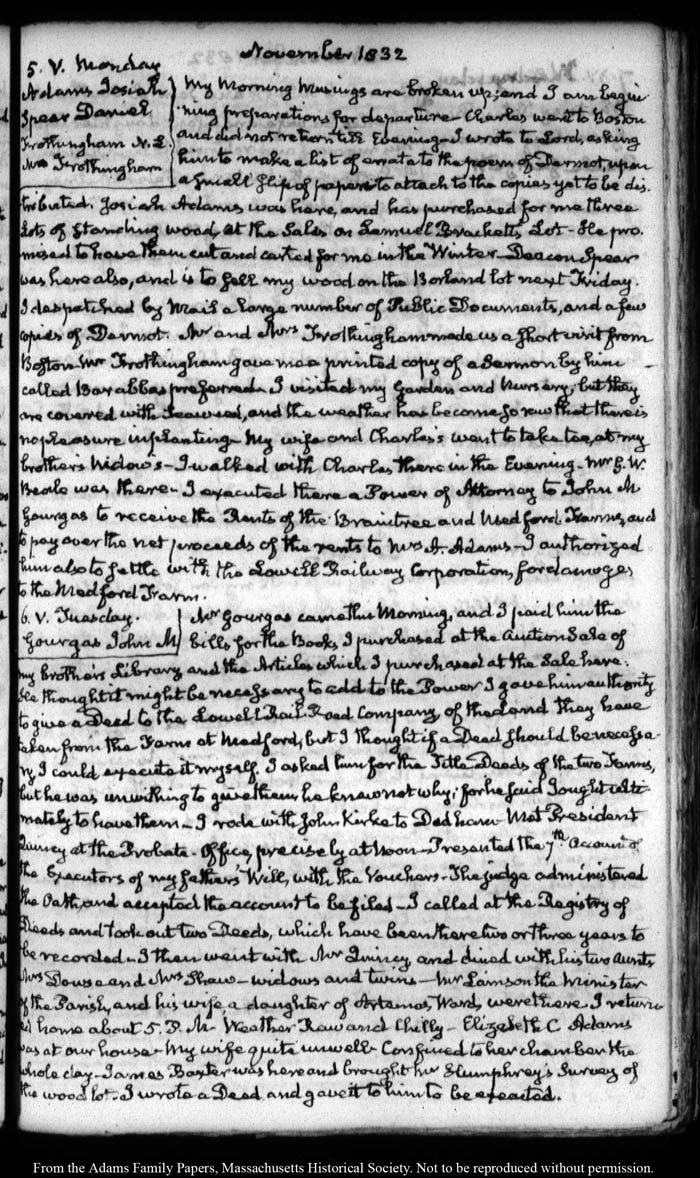 November 1832
5. V. Monday
Adams Josiah
Spear Daniel
Frothingham N. L.
Mrs Frothingham
My Morning Musings are broken up; and I am begin
ning preparations for departure — Charles went to Boston
and did not return till Evening — I wrote to Lord, asking
him to make a list of errata to the poem of Dermot, upon
a small slip of paper to attach to the copies yet to be dis.
tributed. Josiah Adams was here, and has purchased for me three
Lots of Standing wood, at the Sales on Lemuel Bracketts Lot — He pro.
mised to have them cut and carted for me in the Winter — Deacon Spear
was here also, and is to fell my wood on the Borland lot next Friday.
I despatched by Mail a large number of Public Documents, and a few
copies of Dermot. Mr and Mrs Frothingham made us a short visit from
Boston — Mr Frothingham gave me a printed copy of a Sermon by him
called Barabbas preferred — I visited my Garden and Nursery, but they
are covered with Seaweed, and the weather has become so raw that there is
no pleasure in planting — My wife and Charles's went to take tea, at my
brother's widow's — I walked with Charles there in the Evening — Mr G. W.
Beale was there — I executed there a Power of Attorney to John M
Gourgas to receive the Rents of the Braintree and Medford Farms, and
to pay over the net proceeds of the rents to Mrs A. Adams — I authorized
him also to settle with the Lowell Railway Corporation, for damages
to the Medford Farm.
6. V. Tuesday.
Gourgas John M
Mr Gourgas came this Morning, and I paid him the
bills for the Books I purchased at the Auction Sale of
my brother's Library and the Articles which I purchased at the Sale here.
He thought it might be necessary to add to the Power I gave him authority
to give a Deed to the Lowell Rail-Road Company of the land they have
taken from the Farm at Medford, but I thought if a Deed should be necessa-
ry I could execute it myself. I asked him for the Title Deeds of the two Farms,
but he was unwilling to give them he knew not why; for he said I ought ulti-
mately to have them — I rode with John Kirke to Dedham — Met President
Quincy at the Probate-Office, precisely at Noon — Presented the 7th Account of
the Executors of my father's Will, with the Vouchers — The judge administered
the Oath, and accepted the account to be filed — I called at the Registry of
Deeds and took out two Deeds, which have been there two or three years to
be recorded — I then went with Mr Quincy, and dined with his two Aunts
Mrs Dowse and Mrs Shaw — widows and twins — Mr Lamson the Minister
of the Parish, and his wife a daughter of Artemas Ward, were there. I return
ed home about 5. P. M. Weather Raw and Chilly — Elizabeth C Adams
was at our house — My wife quite unwell — Confined to her chamber the
whole day — James Baxter was here and brought Mr Humphrey's Survey of
the wood lot. I wrote a Deed and gave it to him to be executed.
From the Adams Family Papers, Massachusetts Historical Society. Not to be reproduced without permission.